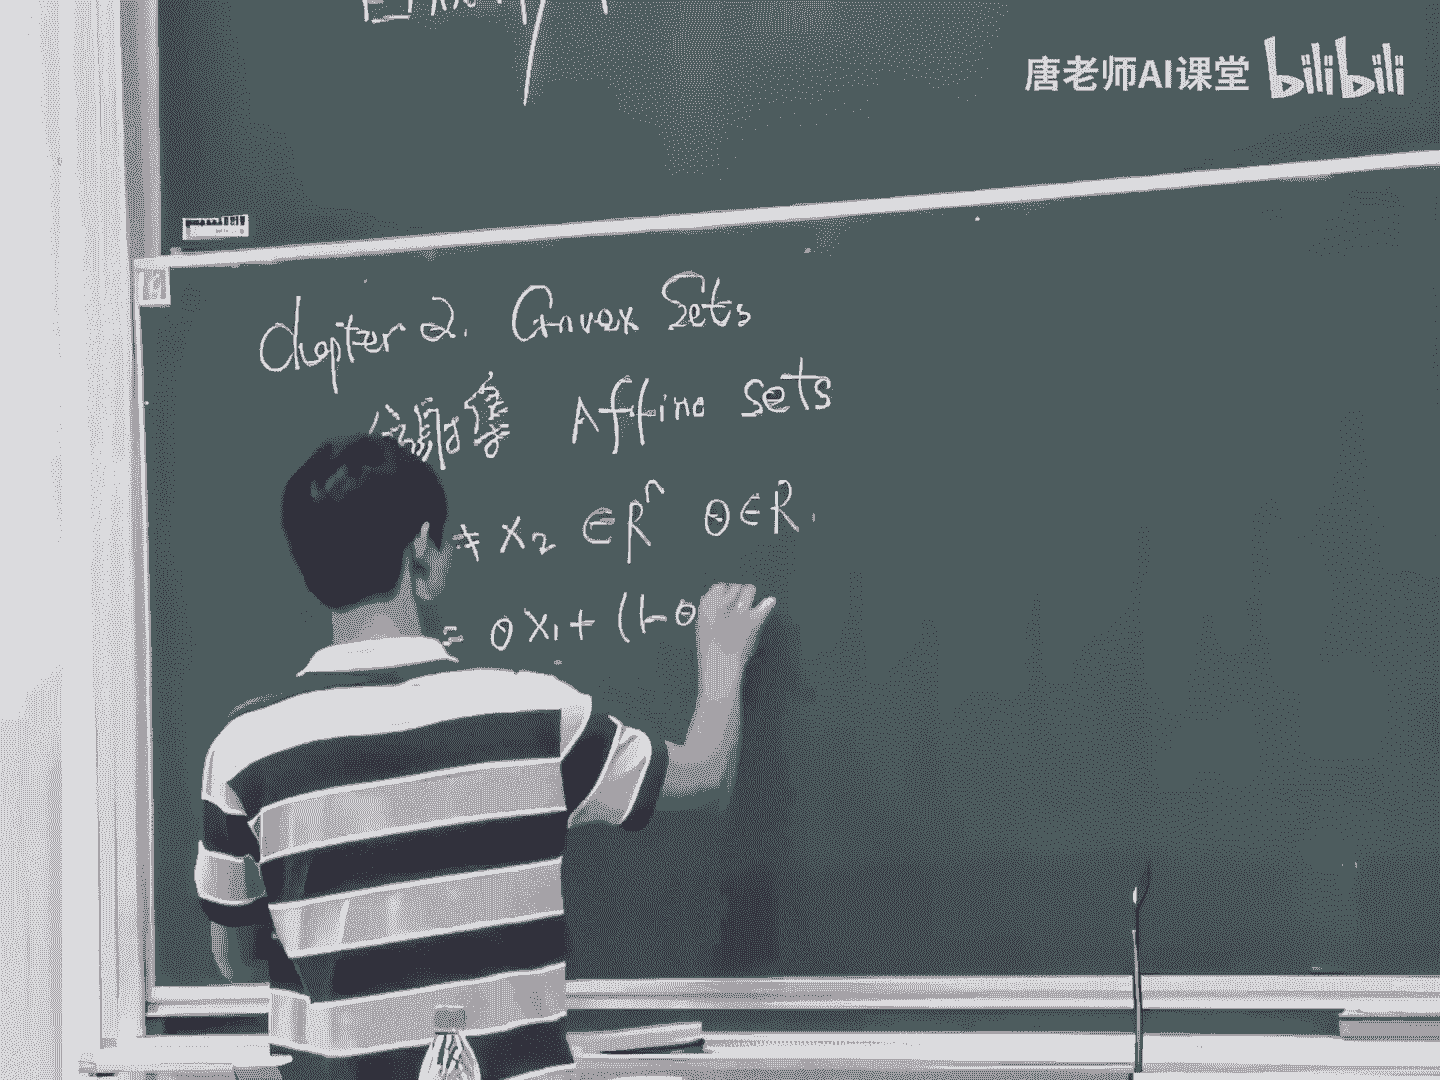 唐老师AI课堂 bilibili
Chapter 2. Convex Sets
仿射集 Affine sets
≠ x₂ ∈ Rⁿ θ∈R.
= θ x₁ + (1-θ